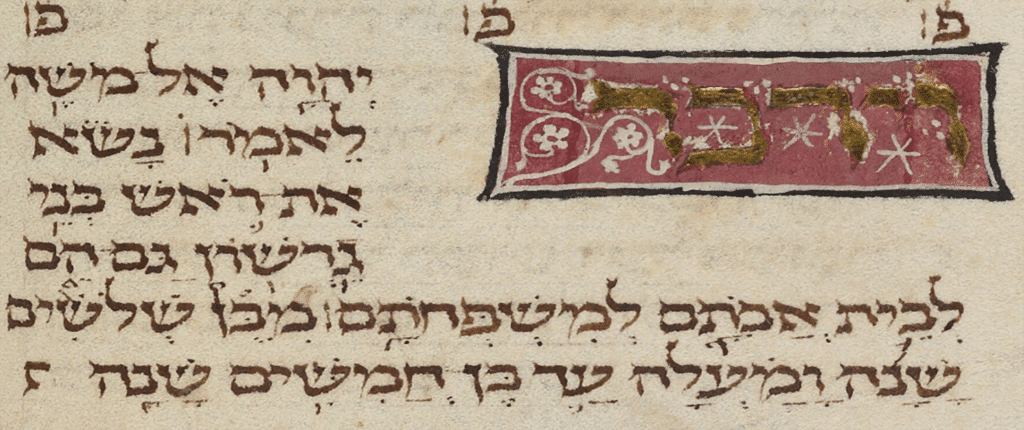 פ פ פ
וידבר
יְהוָה אֶל מֹשֶׁה
לֵּאמֹר׃ נָשֹׂא
אֶת רֹאשׁ בְּנֵי
גֵרְשׁוֹן גַּם הֵם
לְבֵית אֲבֹתָם לְמִשְׁפְּחֹתָם׃ מִבֶּן שְׁלֹשִׁים
שָׁנָה וָמַעְלָה עַד בֶּן חֲמִשִּׁים שָׁנָה